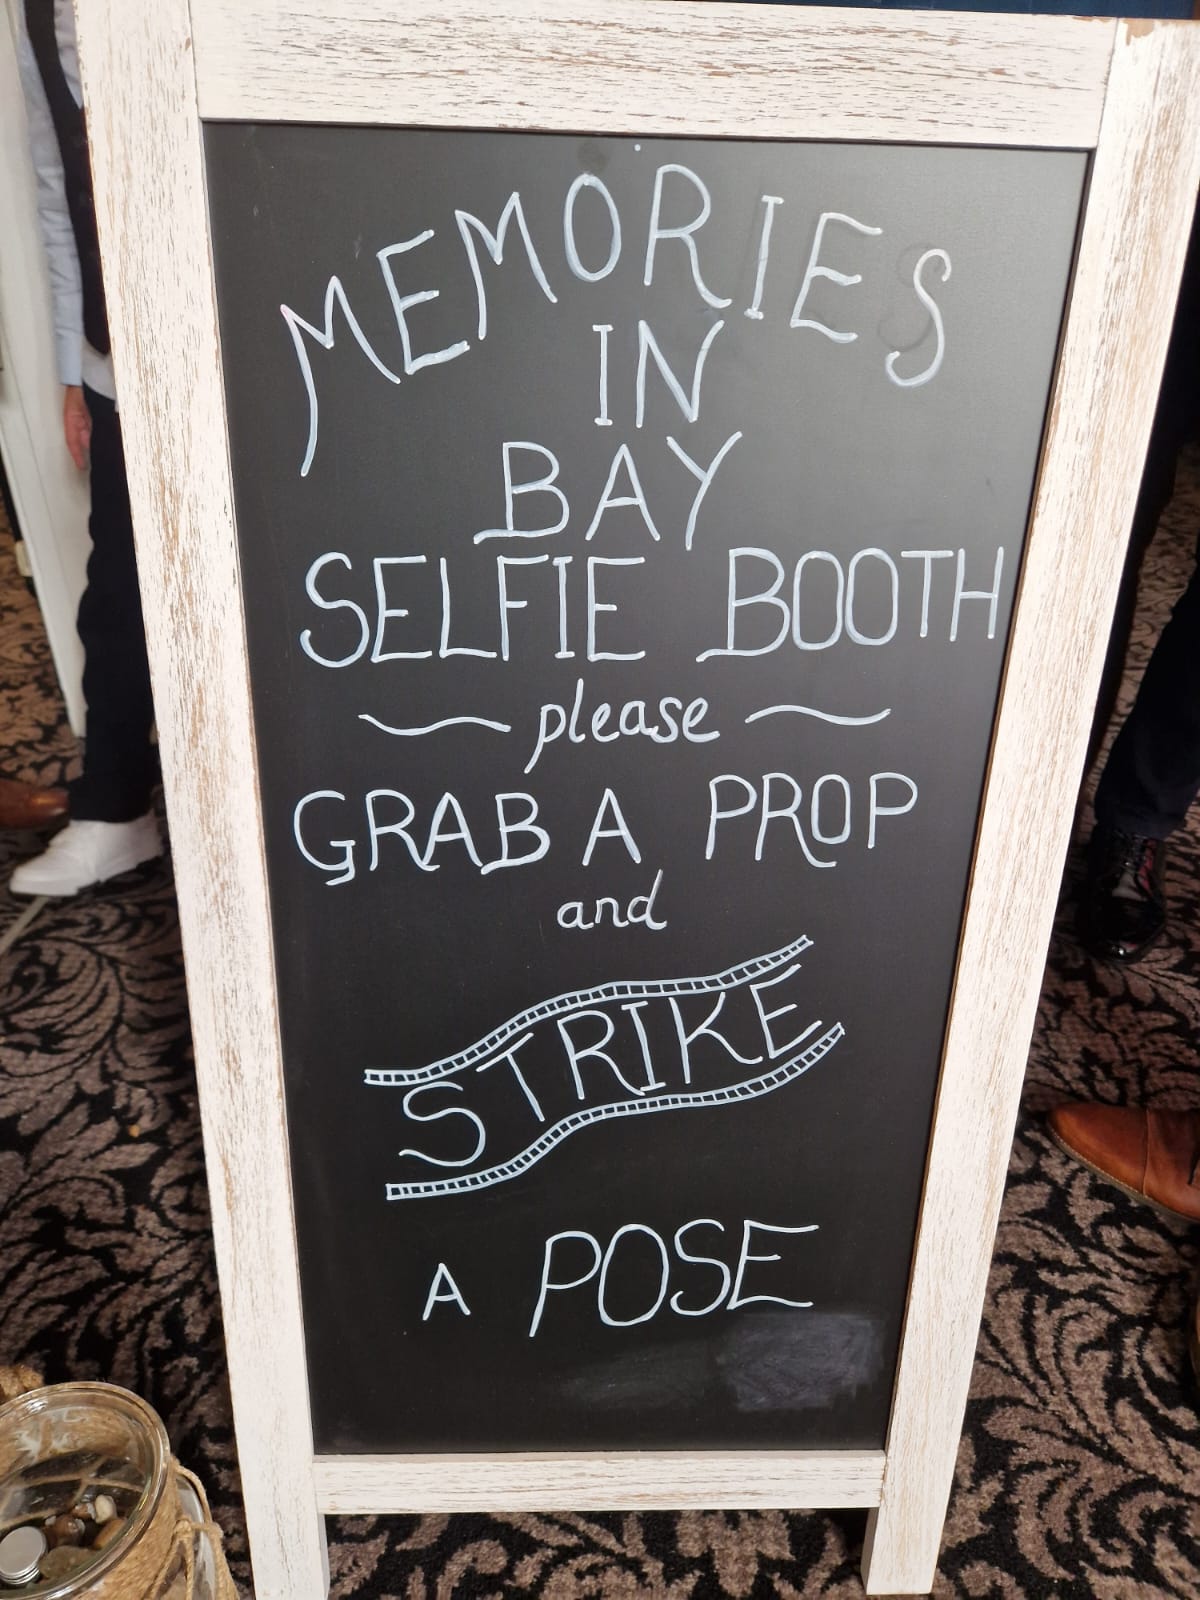 MEMORIES
IN
BAY
SELFIE BOOTH
please
GRAB A PROP
and
STRIKE
A POSE